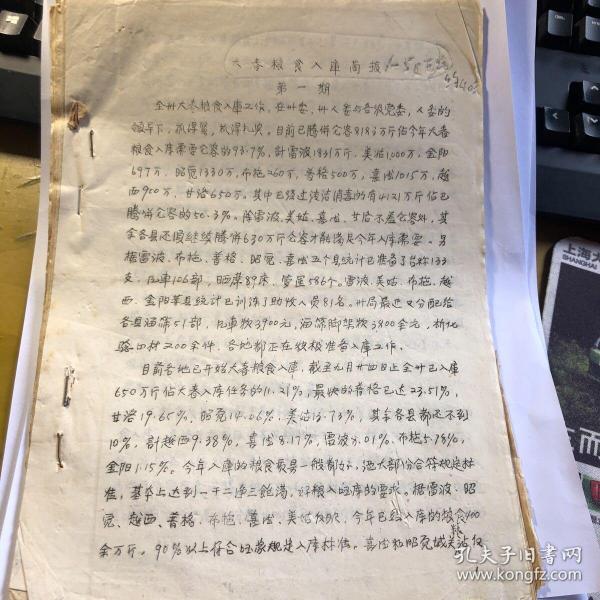 大春粮食入库简报
1-5
第一期
全州大春粮食入库工作，在州委、州人委与各级党委、人委的
领导下，抓得紧，抓得扎实，目前已腾併仓容8183万斤佔今年大春
粮食入库需要仓容的93.7%，計雷波1831万斤，美姑1,000万，金阳
697万，昭觉1330万，布拖260万，普格500万，喜德1015万，越
西900万，甘洛650万。其中已经过清洁消毒的有4121万斤佔已
腾併仓容的50.3%。除雷波、美姑、喜德、甘洛不差仓容外，其
余各县还须继续腾併630万斤仓容才能满足今年入库需要。另
据雷波、布拖、普格、昭觉、喜德五个县統计已准备了台秤133
支、风車106部，晒席89床，管签586个。雷波、美姑、布拖、越
西、金阳等县統计已训练了助收人员81名。州局最近又分配给
各县溜筛51部，风車款3900元，溜筛脚架款3800余元，
200余件，各地都正在积极准备入库工作。
目前各地已开始大春粮食入库，截至九月廿四日止全州已入库
650万斤佔大春入库任务的11.21%，最快的普格已达23.51%，
甘洛19.65%，昭觉14.06%，美姑13.73%，其余各县都还不到
10%，計越西9.38%，喜德8.17%，雷波8.01%，布拖5.78%，
金阳1.15%。今年入库的粮食质量一般都好，绝大部份合符规定标
准，基本上达到一干二净三飽满，好粮入库的要求。据雷波、昭
觉、越西、普格、布拖、喜德、美姑反映，今年已经入库的粮食400
余万斤。90%以上符合国家规定入库标准。喜德和昭觉城关站仅
上海大
SHANGHAI
孔夫子旧书网
www.kongfz.com